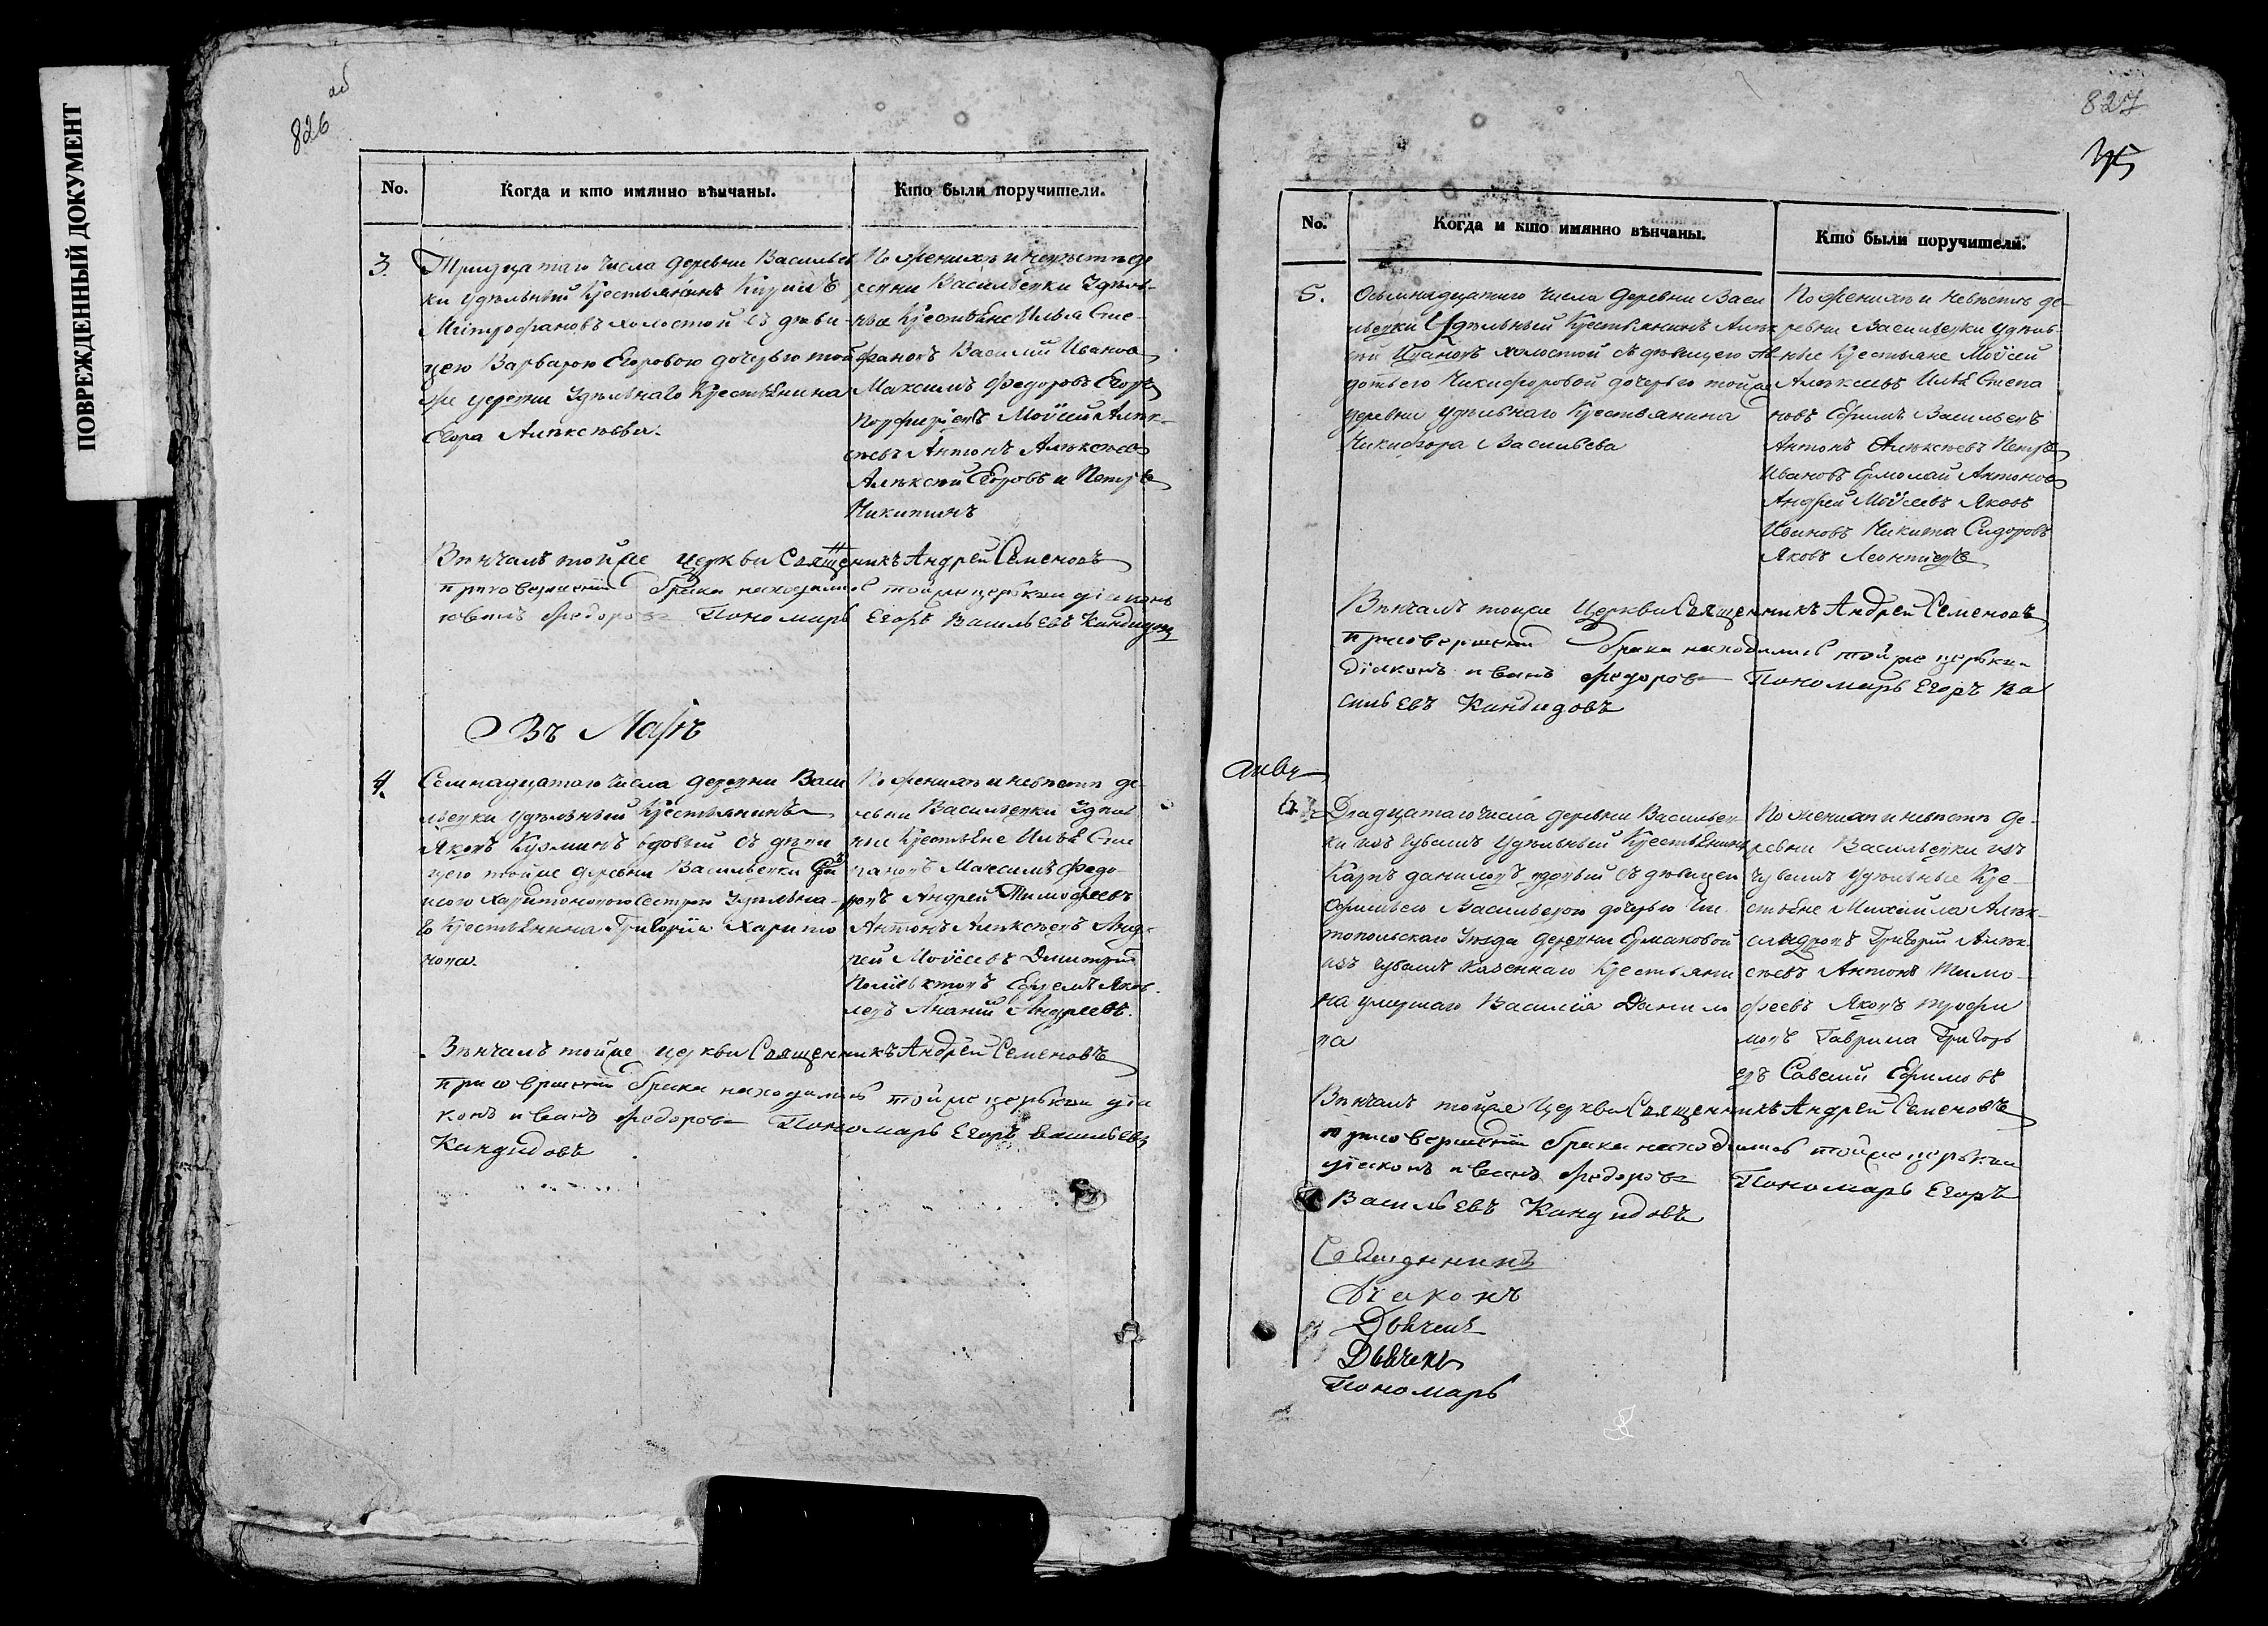 ПОВРЕЖДЕННЫЙ ДОКУМЕНТ
826 об
No.
Когда и кто имянно вѣнчаны.
Кто были поручители.
3.
Тридцатаго числа деревни Васильев
ки удѣльный Крестьянинъ
Митрофановъ холостой съ дѣви-
цею Варварою Егоровою дочерью той
же деревни Удѣльнаго Крестьянина
Егора Алексѣева.
По женихѣ и невѣстѣ де
ревни Васильевки Удѣль-
ные Крестьяне Илья Сте-
фановъ Василий Иванов
Максимъ Федоровъ Егоръ
Порфирьевъ Мойсей Алек-
сѣевъ Антонъ Алексѣев
Алексѣй Егоровъ и Петръ
Никитинъ
Вѣнчалъ тойже церкви Священникъ Андрей Семеновъ
при совершении брака находились тойже церькви діаконъ
иванъ Федоровъ Пономарь Егоръ Васильевъ Кандидов
Въ Маѣ
4.
Семнадцатаго числа деревни Васи
льевки удѣльный Крестьянинъ
Яковъ Кузминъ вдовый съ дѣви
цею тойже деревни Васильевки
Харитоновою Сестрою Удѣльна-
го Крестьянина Григория Харито
нова
По женихѣ и невѣстѣ де-
ревни Васильевки Удѣль
ные Крестьяне Илья Сте
пановъ Максимъ Федо-
ровъ Андрей Тимофеевъ
Антонъ Алексѣевъ Анд-
рей Мойсеевъ Димитрий
Ефремъ Яков-
левъ Ананий Андреевъ.
Вѣнчалъ тойже церкви Священникъ Андрей Семеновъ
при совершении брака находились тойже церькви діа
конъ иванъ Федоровъ Пономарь Егоръ Васильевъ
Кандидовъ
827
35
No.
Когда и кто имянно вѣнчаны.
Кто были поручители.
5.
Осьмнадцатаго числа деревни Васи
льевки Удѣльный Крестьянинъ Алек
сѣй Ивановъ холостой съ дѣвицею Ав
дотьею Никифоровой дочерью тойже
деревни удѣльнаго Крестьянина
Никифора Васильева
По женихѣ и невѣстѣ де-
ревни Васильевки удѣль-
ные Крестьяне Мойсей
Алексѣевъ Илья Степа
новъ Ефимъ Васильевъ
Антонъ Алексѣевъ Петръ
Ивановъ Ермолай Антонов
Андрей Мойсеевъ Яковъ
Ивановъ Никита Сидоровъ
Яковъ Леонтьевъ
Вѣнчалъ тойже Церкви Священникъ Андрей Семеновъ
при совершении брака находились тойже церькви
Діаконъ иванъ Федоровъ Пономарь Егоръ Ва
сильевъ Кандидовъ
6.
Двадцатаго числа деревни Васильев
ки изъ чувашъ Удѣльный Крестьянинъ
Карпъ Даниловъ вдовый съ дѣвицею
Васильевою дочерью Чис
топольскаго Уѣзда деревни Ермаковой
изъ чувашъ казеннаго Крестьяни
на умершаго Василія Данило
ва
По женихѣ и невѣстѣ де-
ревни Васильевки изъ
чувашъ удѣльные Кре-
стьяне Михайла Алек-
сандровъ Григорий Алек-
сѣевъ Антонъ Тимо-
феевъ Яковъ Трофи
мовъ Гаврила Григорь
евъ Савелий Ефимовъ
Вѣнчалъ тойже Церкви Священникъ Андрей Семеновъ
при совершении брака находились тойже церькви
діаконъ иванъ Федоровъ Пономарь Егоръ
Васильевъ Кандидовъ
Священникъ
Діаконъ
Дьячекъ
Дьячекъ
Пономарь